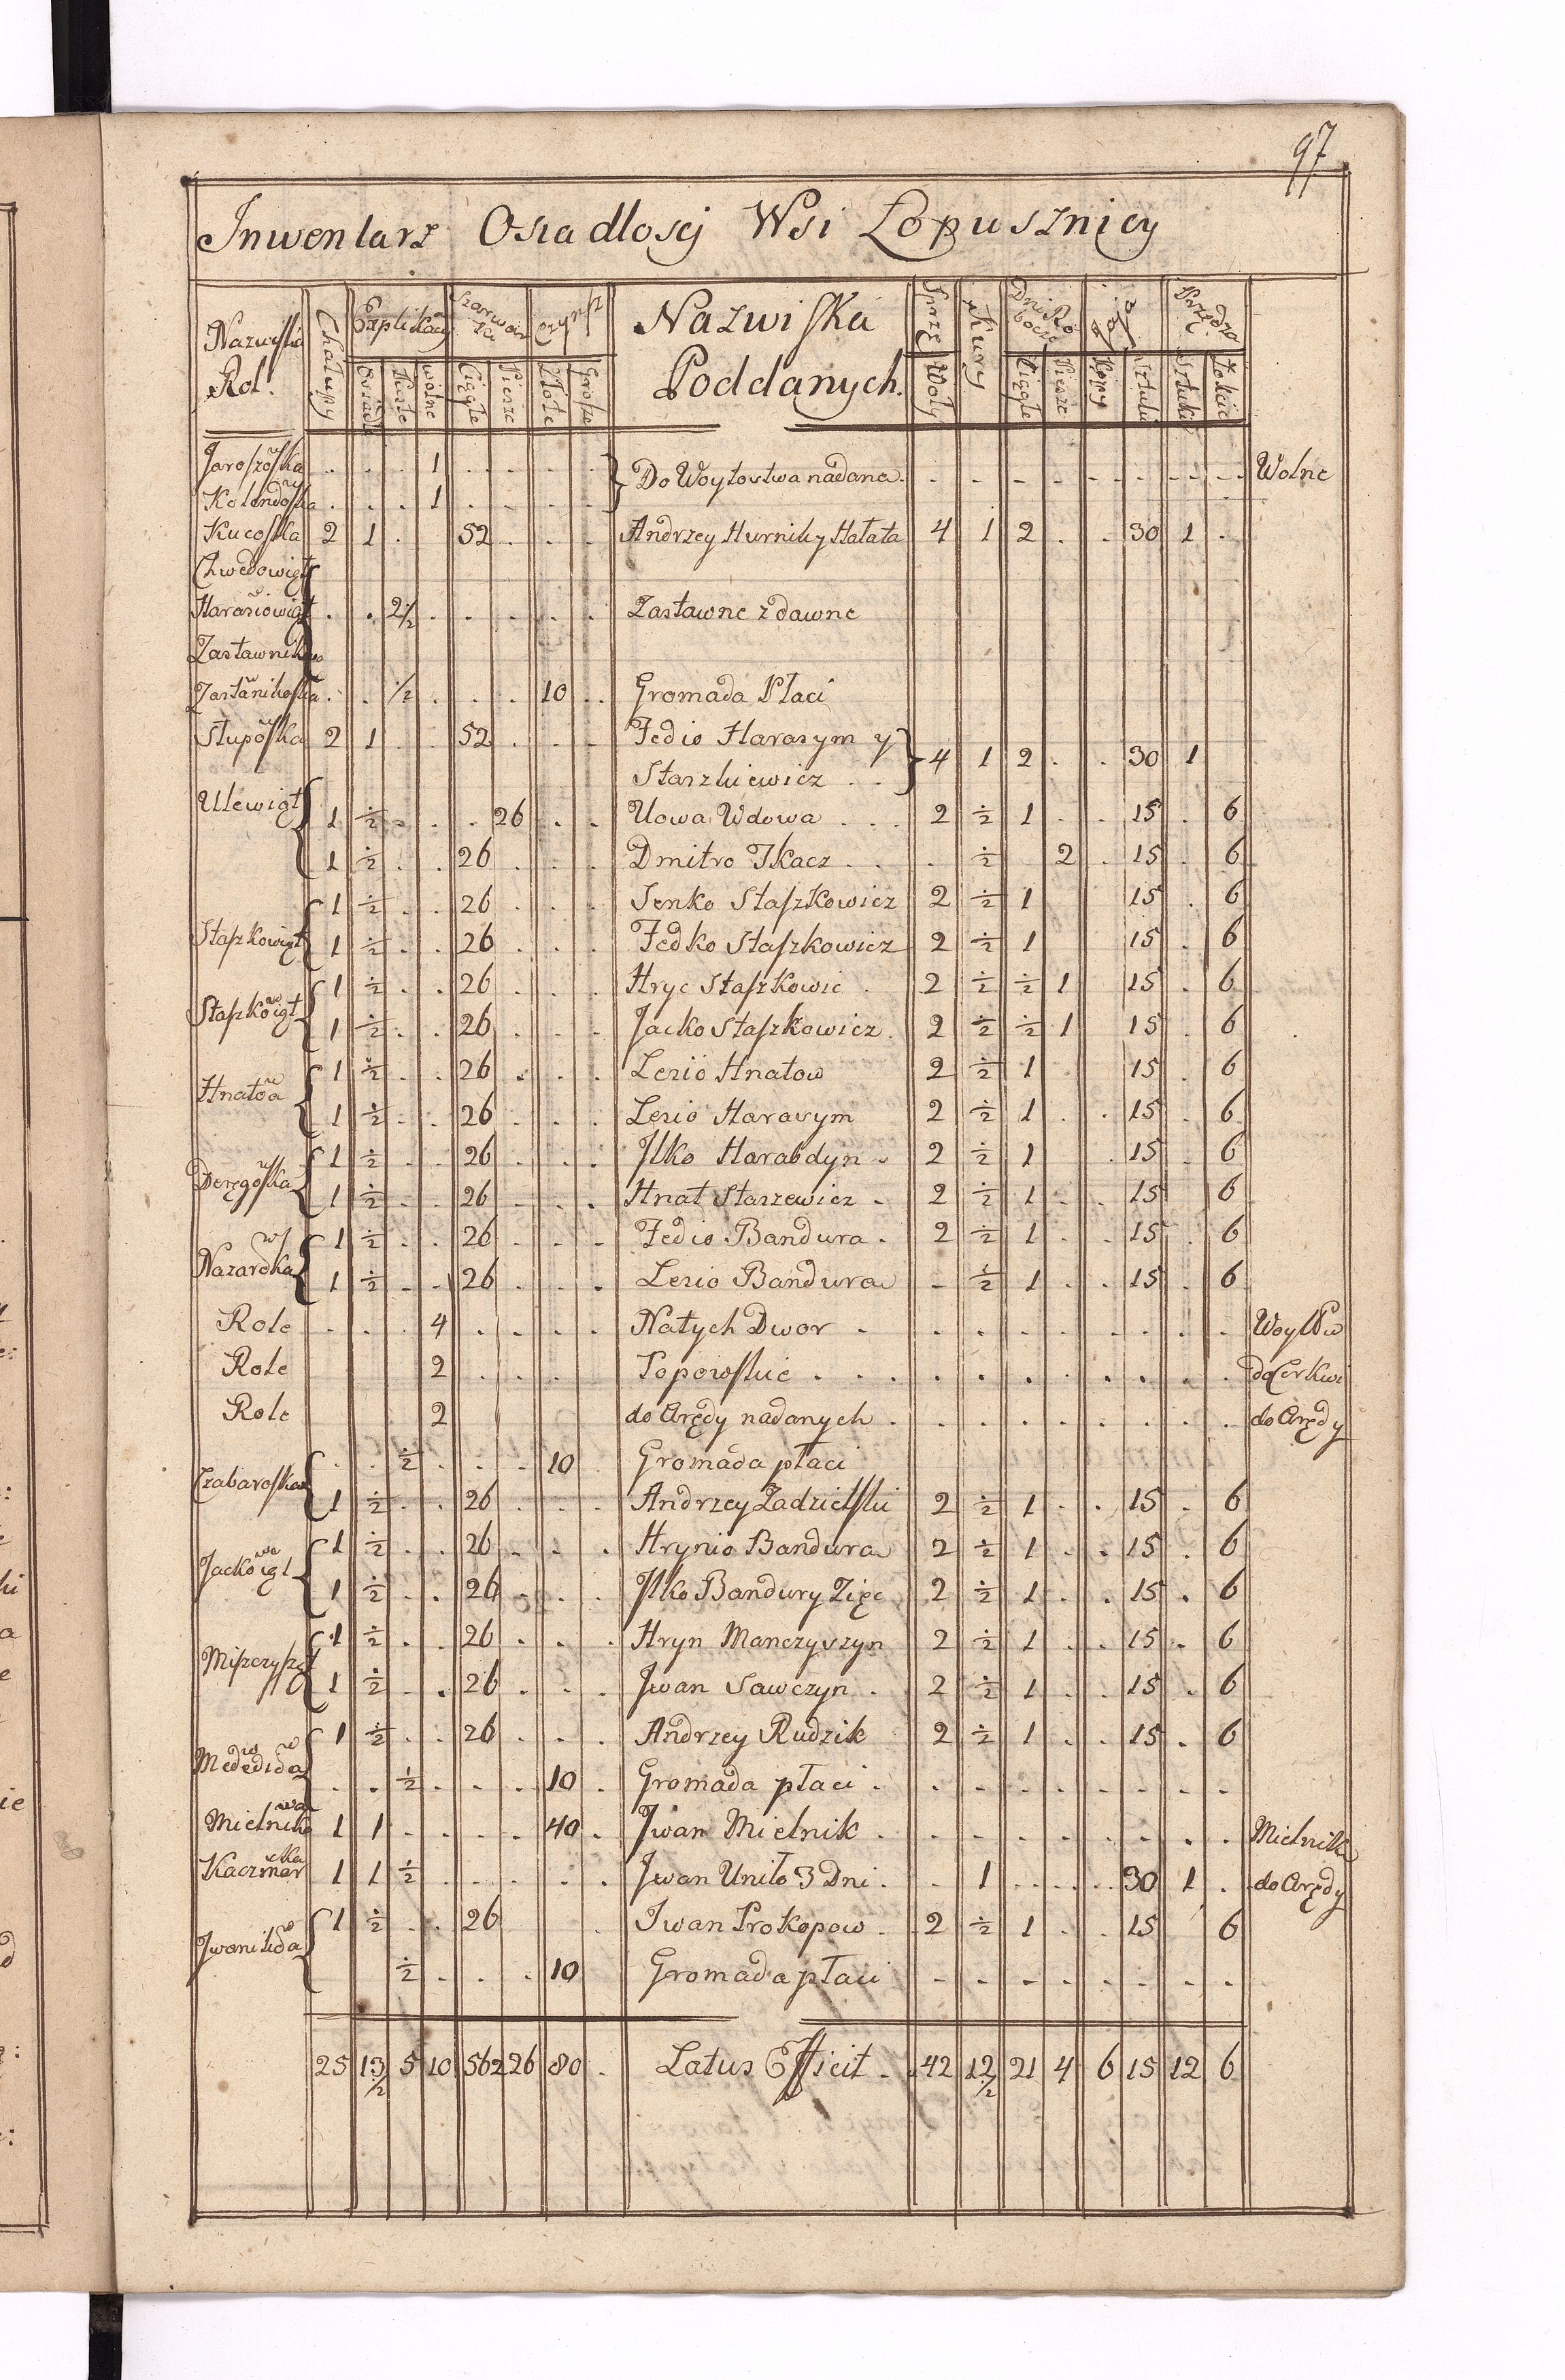 97
Inwentarz Osiadłoscj Wsi Łopusznicy
Nazwiska Rol. Chałupy Explikacy Szarwarki Czynsz Nazwiska Poddanych. Sprzę Kury Dni Robocze Jaja Przędza
Osiadłe Puste wolne Ciągłe Piesze Złote Grosze Woły Ciągłe Piesze Kopy Sztuki Sztuki Łokcie
Jaroszowska . . . 1 . . . . Do Woytowstwa nadane . . . . . . . . . Wolne
Kolendowska . . . 1 . . . .
Kucoska 2 1 . 52 . . . Andrzey Hurnik y Hałata 4 1 2 . . 30 1 .
Chwedowigt
Harasiowigt . . 2½ . . . . . Zastawne z dawne
Zastawnikow
Zastawnikoska . . ½ . . . 10 . Gromada Płaci
Stupowska 2 1 . . 52 . . . Fedio Harasym y
Staszkiewicz . . 4 1 2 . . 30 1
Ulewigt 1 ½ . . . 26 . . Uowa Wdowa . . . 2 ½ 1 . . 15 . 6
1 ½ . . 26 . . . Dmitro Tkacz . . . ½ 2 . 15 . 6
1 ½ . . 26 . . . Senko Staszkowicz 2 ½ 1 15 . 6
Staszkowigt 1 ½ . . 26 . . . Fedko Staszkowicz 2 ½ 1 15 . 6
1 ½ . . 26 . . . Hryc Staszkowic . 2 ½ ½ 1 15 . 6
Staszkowigt 1 ½ . . 26 . . . Jacko Staszkowicz . 2 ½ ½ 1 15 . 6
1 ½ . . 26 . . . Lesio Hnatow 2 ½ 1 15 . 6
Hnatowa 1 ½ . . 26 . . . Lesio Harasym 2 ½ 1 . . 15 . 6
1 ½ . . 26 . . . Ilko Harabdyn . 2 ½ 1 . 15 . 6
Deręgowska 1 ½ . . 26 . . . Hnat Staszewicz . 2 ½ 1 . . 15 . 6
1 ½ . . 26 . . . Fedio Bandura . 2 ½ 1 . . 15 . 6
Nazarowska 1 ½ . . 26 . . . Lesio Bandura . ½ 1 . . 15 . 6
Role . . . 4 . . . . Natych Dwor . . . . . . . . .
Role 2 . . . . Popowskie . . . . . . . . . . . do Cerkwi
Role 2 do Arędy nadanych . . . . . . . . . do Arędy
. . ½ . . . 10 Gromada płaci
Czabaroska 1 ½ . . 26 . . . Andrzey Zadzielski 2 ½ 1 . . 15 . 6
1 ½ . . 26 . . . Hrynio Bandura 2 ½ 1 . . 15 . 6
Jackowigt 1 ½ . . 26 . . . Ilko Bandury Zięc 2 ½ 1 . . 15 . 6
1 ½ . . 26 . . . Hryn Manczyszyn 2 ½ 1 . . 15 . 6
1 ½ . . 26 . . . Jwan Sawczyn . 2 ½ 1 . . 15 . 6
1 ½ . . 26 . . . Andrzey Rudzik 2 ½ 1 . . 15 . 6
. . ½ . . . 10 . Gromada płaci . . . . . . . . .
Mielnikowa 1 1 . . . . 40 . Jwan Mielnik . . . . . . . . . Mielnik
Kaczmarska 1 1 ½ . . . . . Jwan Uniło 3 Dni . . 1 . . . 30 1 . do Arędy
1 ½ . . 26 . Iwan Prokopow . 2 ½ 1 . . 15 6
½ . . . 10 Gromada płaci . . . . . . . .
25 13½ 5 10 562 26 80 . Latus Efficit . 42 12½ 21 4 6 15 12 6